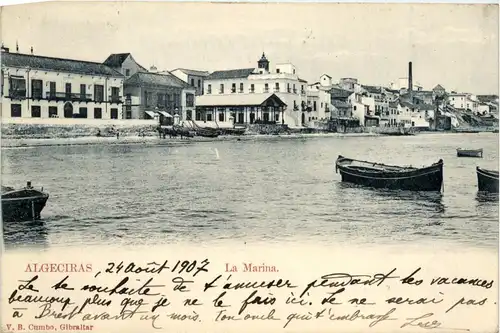 ALGECIRAS 24 Août 1907 La Marina.
Je te souhaite de t'amuser pendant tes vacances
beaucoup plus que je ne le fais ici. Je ne serai pas
à Brest avant un mois. Ton oncle qui t'embrasse
V. B. Cumbo, Gibraltar